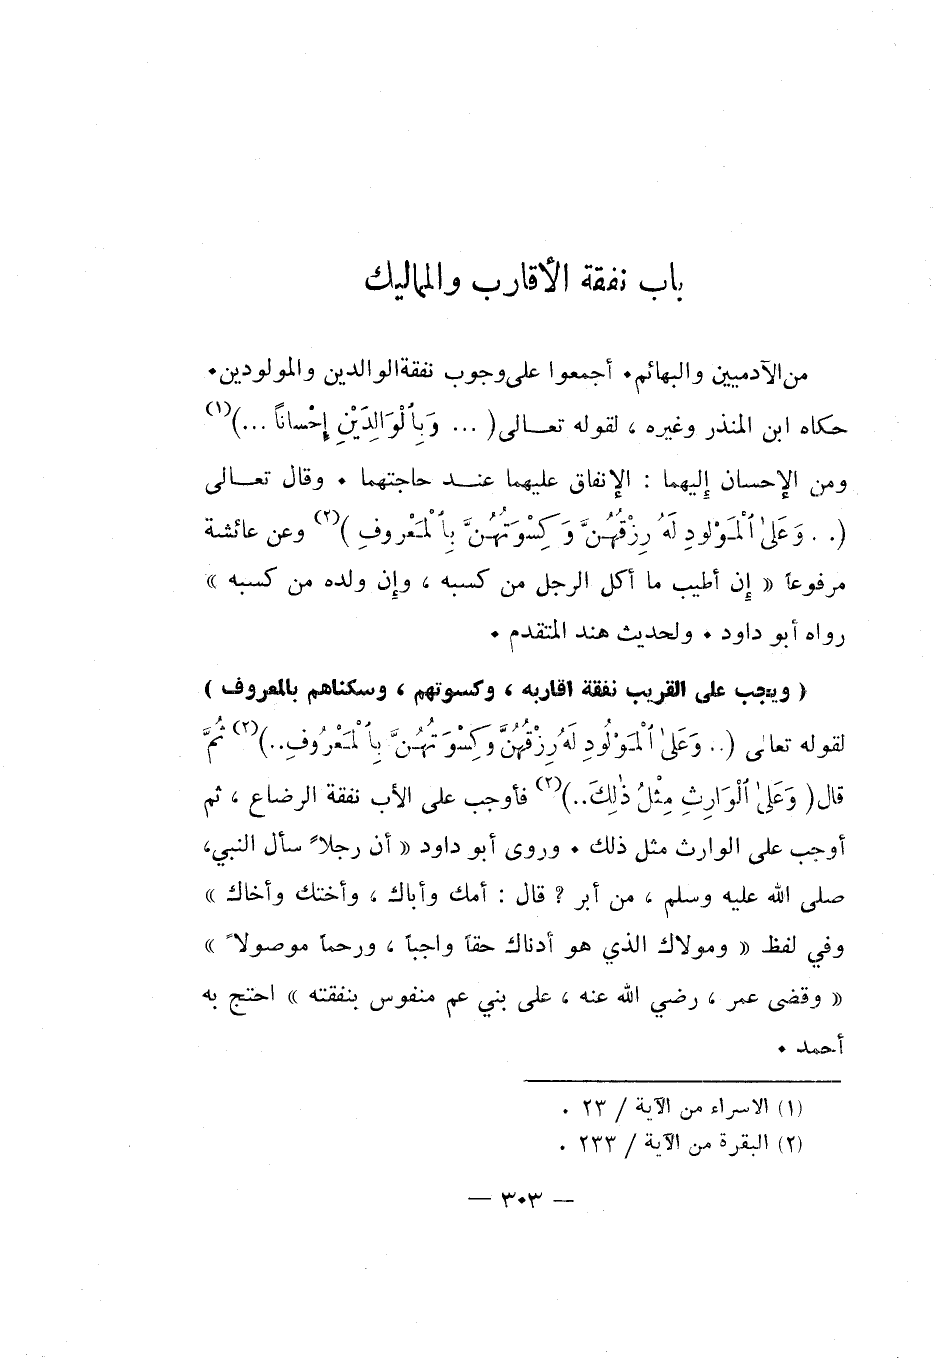 باب نفقة الأقارب والمماليك
من الآدميين والبهائم. أجمعوا على وجوب نفقة الوالدين والمولودين.
حكاه ابن المنذر وغيره ، لقوله تعـالى ( ... وَبِٱلْوَالِدَيْنِ إِحْسَاناً ...)(١)
ومن الإحسان إليهما : الإنفاق عليهما عنـد حاجتهما . وقال تعـالى
(.. وَعَلَى ٱلْمَوْلُودِ لَهُ رِزْقُهُنَّ وَكِسْوَتُهُنَّ بِٱلْمَعْرُوفِ )(٢) وعن عائشة
مرفوعاً « إن أطيب ما أكل الرجل من كسبه ، وإن ولده من كسبه »
رواه أبو داود . ولحديث هند المتقدم .
( ويجب على القريب نفقة اقاربه ، وكسوتهم ، وسكناهم بالمعروف )
لقوله تعالى (.. وَعَلَى ٱلْمَوْلُودِ لَهُ رِزْقُهُنَّ وَكِسْوَتُهُنَّ بِٱلْمَعْرُوفِ..)(٢) ثُمَّ
قال ( وَعَلَى ٱلْوَارِثِ مِثْلُ ذٰلِكَ..)(٢) فأوجب على الأب نفقة الرضاع ، ثم
أوجب على الوارث مثل ذلك . وروى أبو داود « أن رجلاً سأل النبي،
صلى الله عليه وسلم ، من أبر ? قال : أمك وأباك ، وأختك وأخاك »
وفي لفظ « ومولاك الذي هو أدناك حقاً واجباً ، ورحماً موصولاً »
« وقضى عمر ، رضي الله عنه ، على بني عم منفوس بنفقته » احتج به
أحمد .
(١) الاسراء من الآية / ٢٣ .
(٢) البقرة من الآية / ٢٣٣ .
— ٣٠٣ —